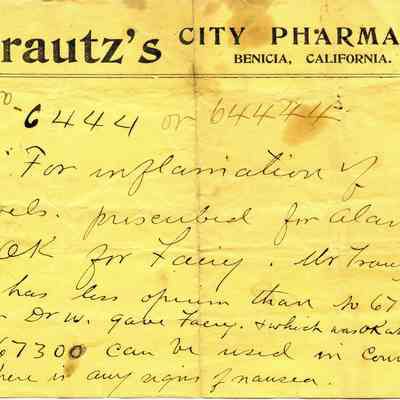 rautz's CITY PHARMA
BENICIA, CALIFORNIA.
6444 or 64444
For inflamation of
els. prescribed for Alan
OK for Fairy. Mr Trau
has less opium than No 67
Dr W. gave Fairy. & which was OK
67300 can be used in Conn
here is any signs of nausea.